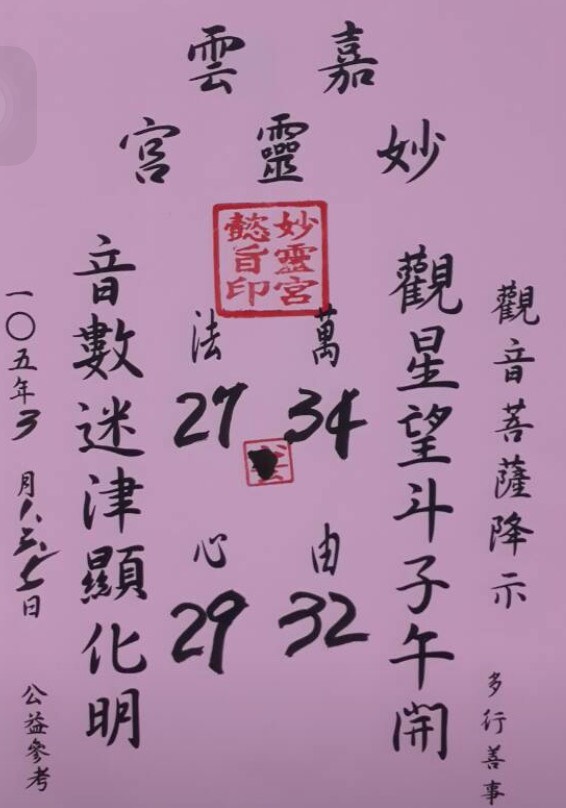 嘉雲
妙靈宮
妙靈宮
懿旨印
觀音菩薩降示
多行善事
觀星望斗子午開
萬法由心
34
27
32
29
音數迷津顯化明
一〇五年3月1.3.七日
公益參考